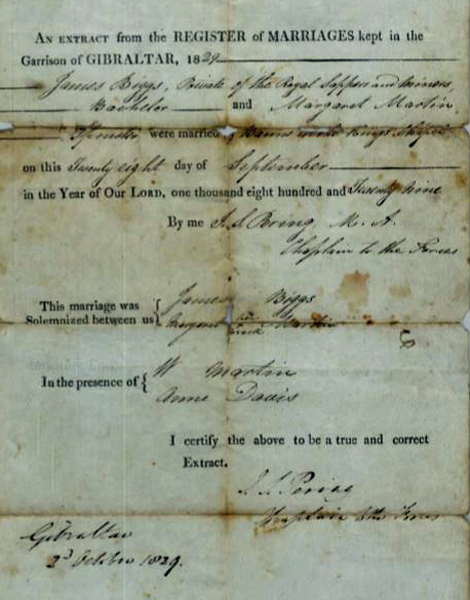 AN EXTRACT from the REGISTER of MARRIAGES kept in the
Garrison of GIBRALTAR, 1829
James Biggs, Private of the Royal Sappers and Miners,
Bachelor and Margaret Martin
Spinster were married by Banns in the Kings Chapel
on this Twenty eight day of September
in the Year of Our LORD, one thousand eight hundred and Twenty nine
By me M. A.
Chaplain to the Forces
This marriage was
Solemnized between us
James Biggs
Margaret Martin
In the presence of
W Martin
Anne Davis
I certify the above to be a true and correct
Extract.
Chaplain to the Forces
Gibraltar
2d October 1829.